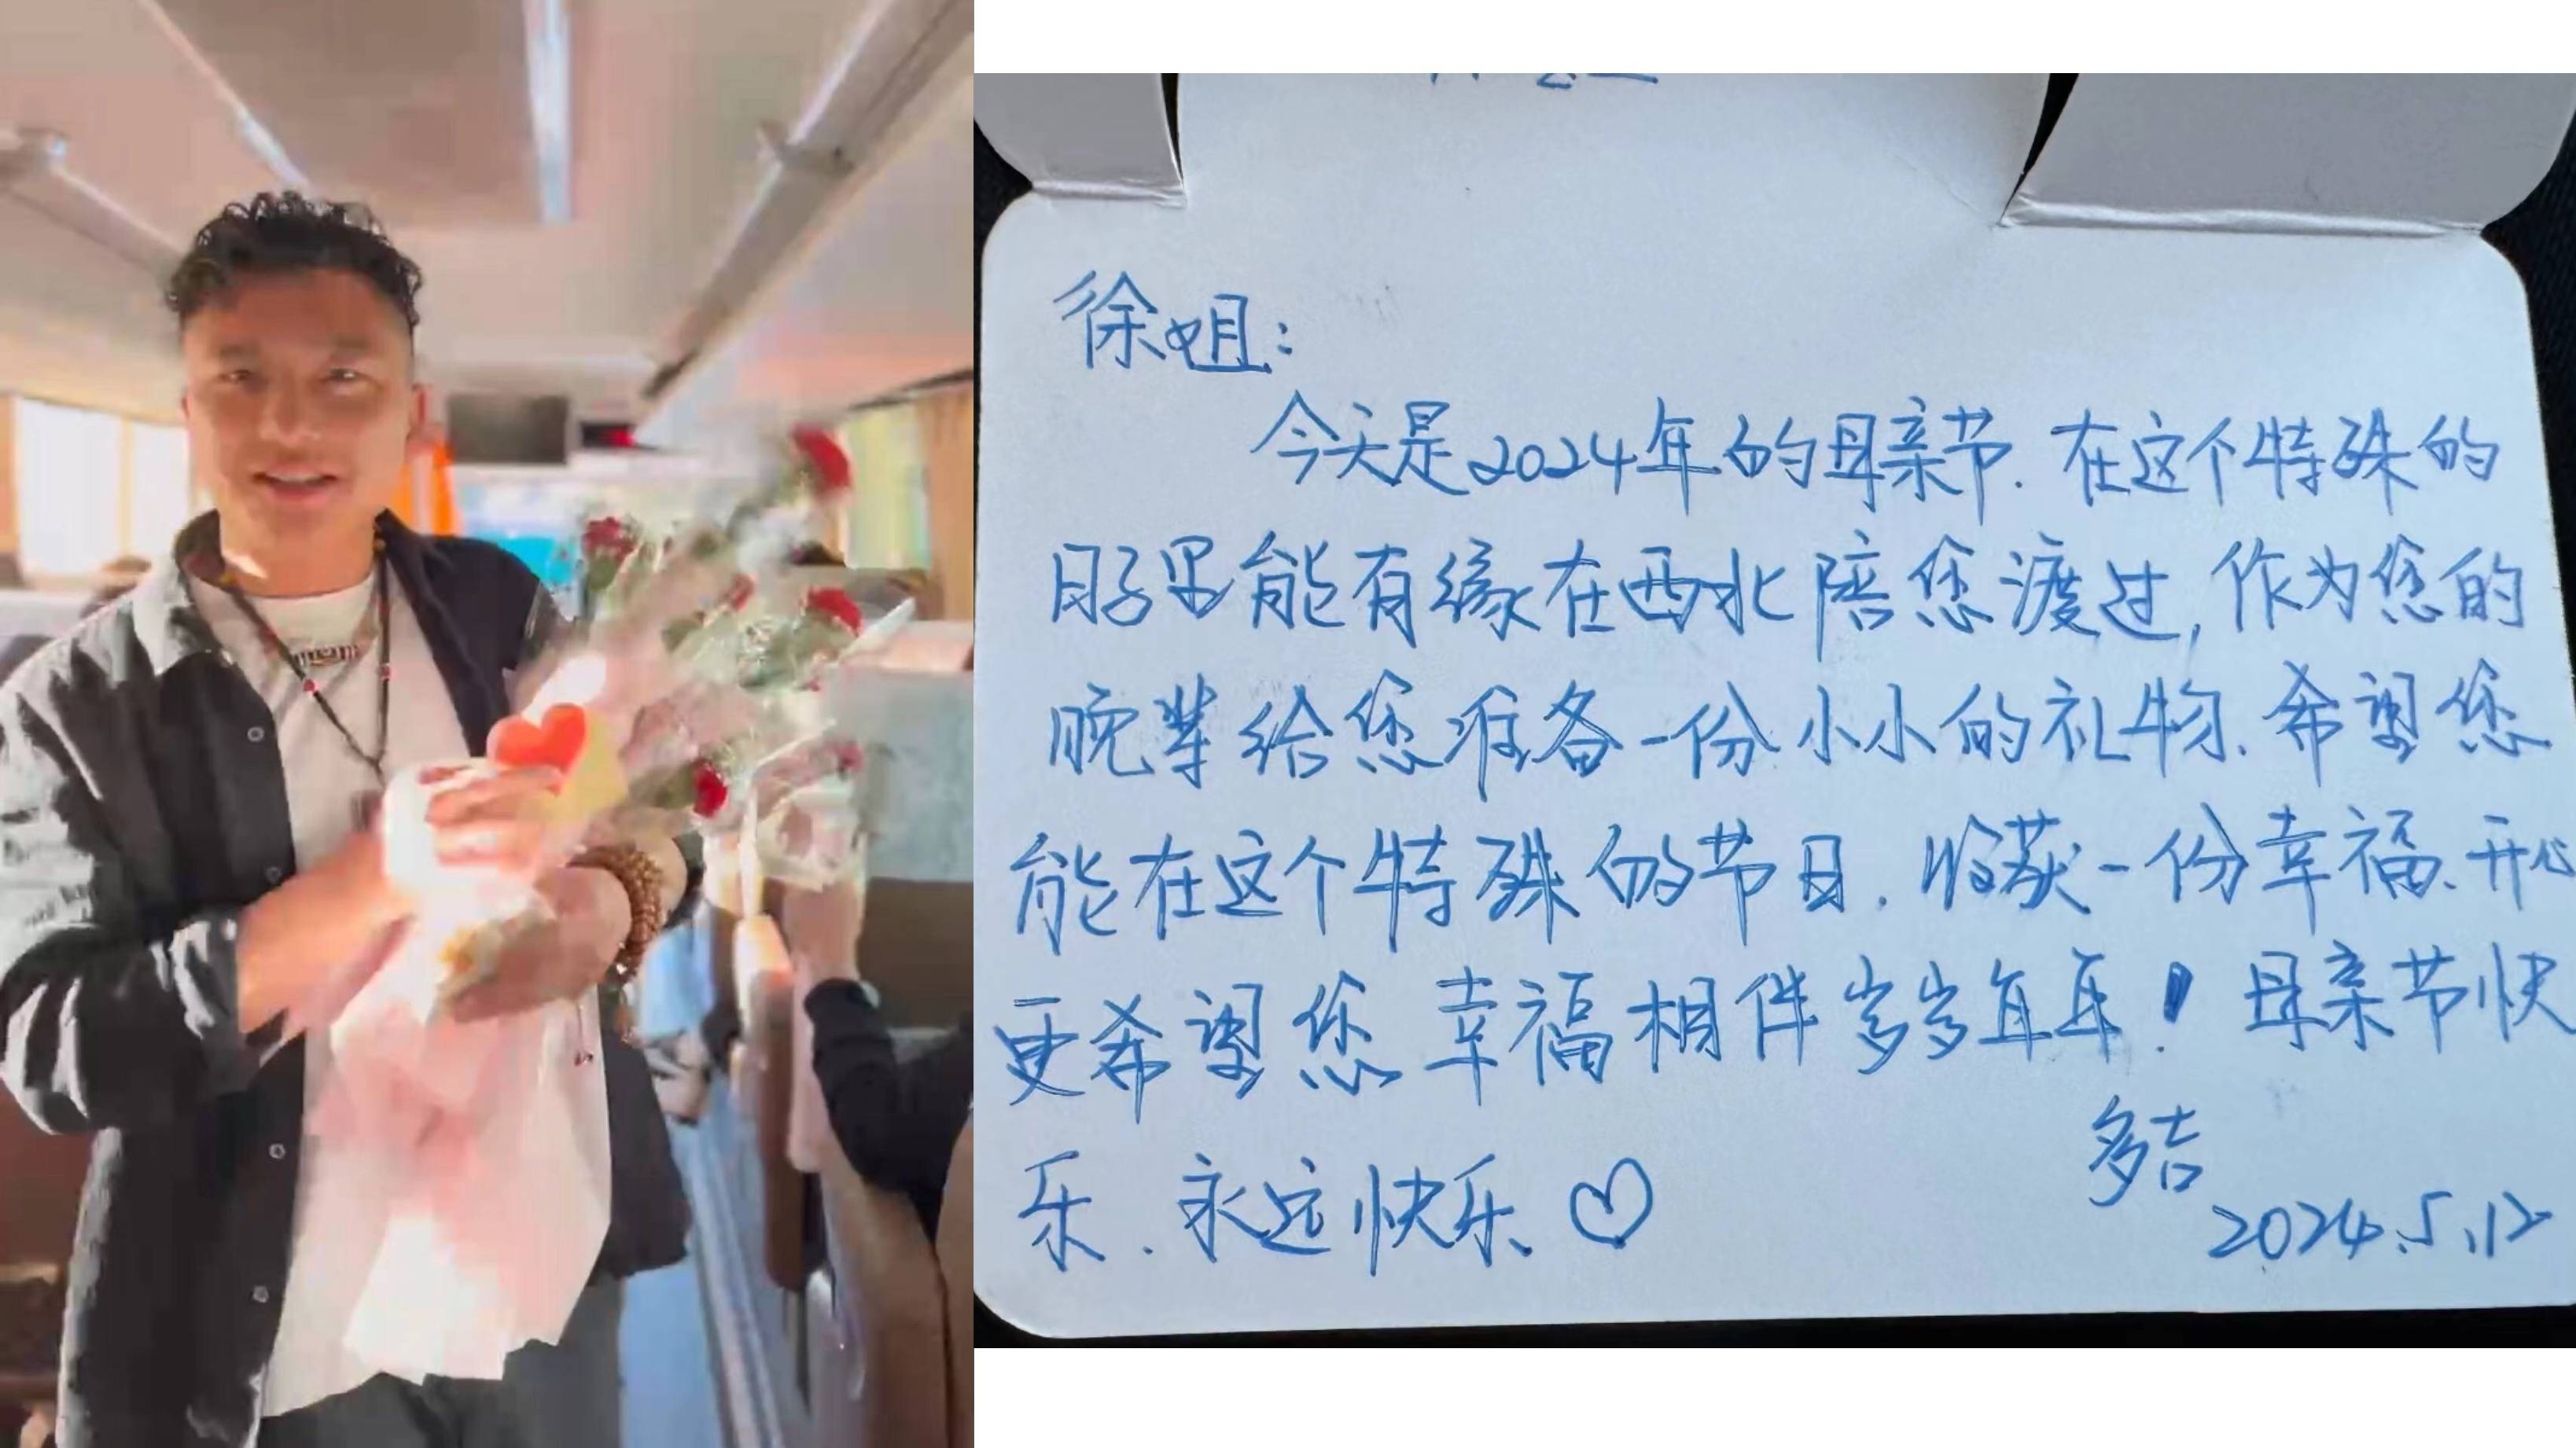 徐姐：
今天是2024年的母亲节.在这个特殊的
日子里能有缘在西北陪您渡过,作为您的
晚辈给您准备一份小小的礼物.希望您
能在这个特殊的节日.收获一份幸福、开心
更希望您幸福相伴岁岁年年！母亲节快
乐.永远快乐、♡
多吉
2024.5.12